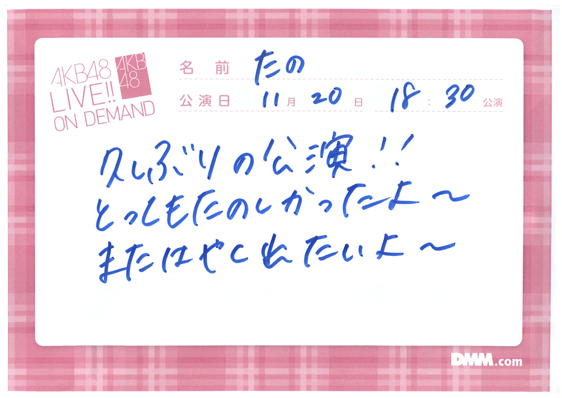 AKB48
LIVE!!
ON DEMAND
AKB
48
名前 たの
公演日 11月20日 18:30公演
久しぶりの公演!!
とってもたのしかったよ〜
またはやく出たいよ〜
DMM.com